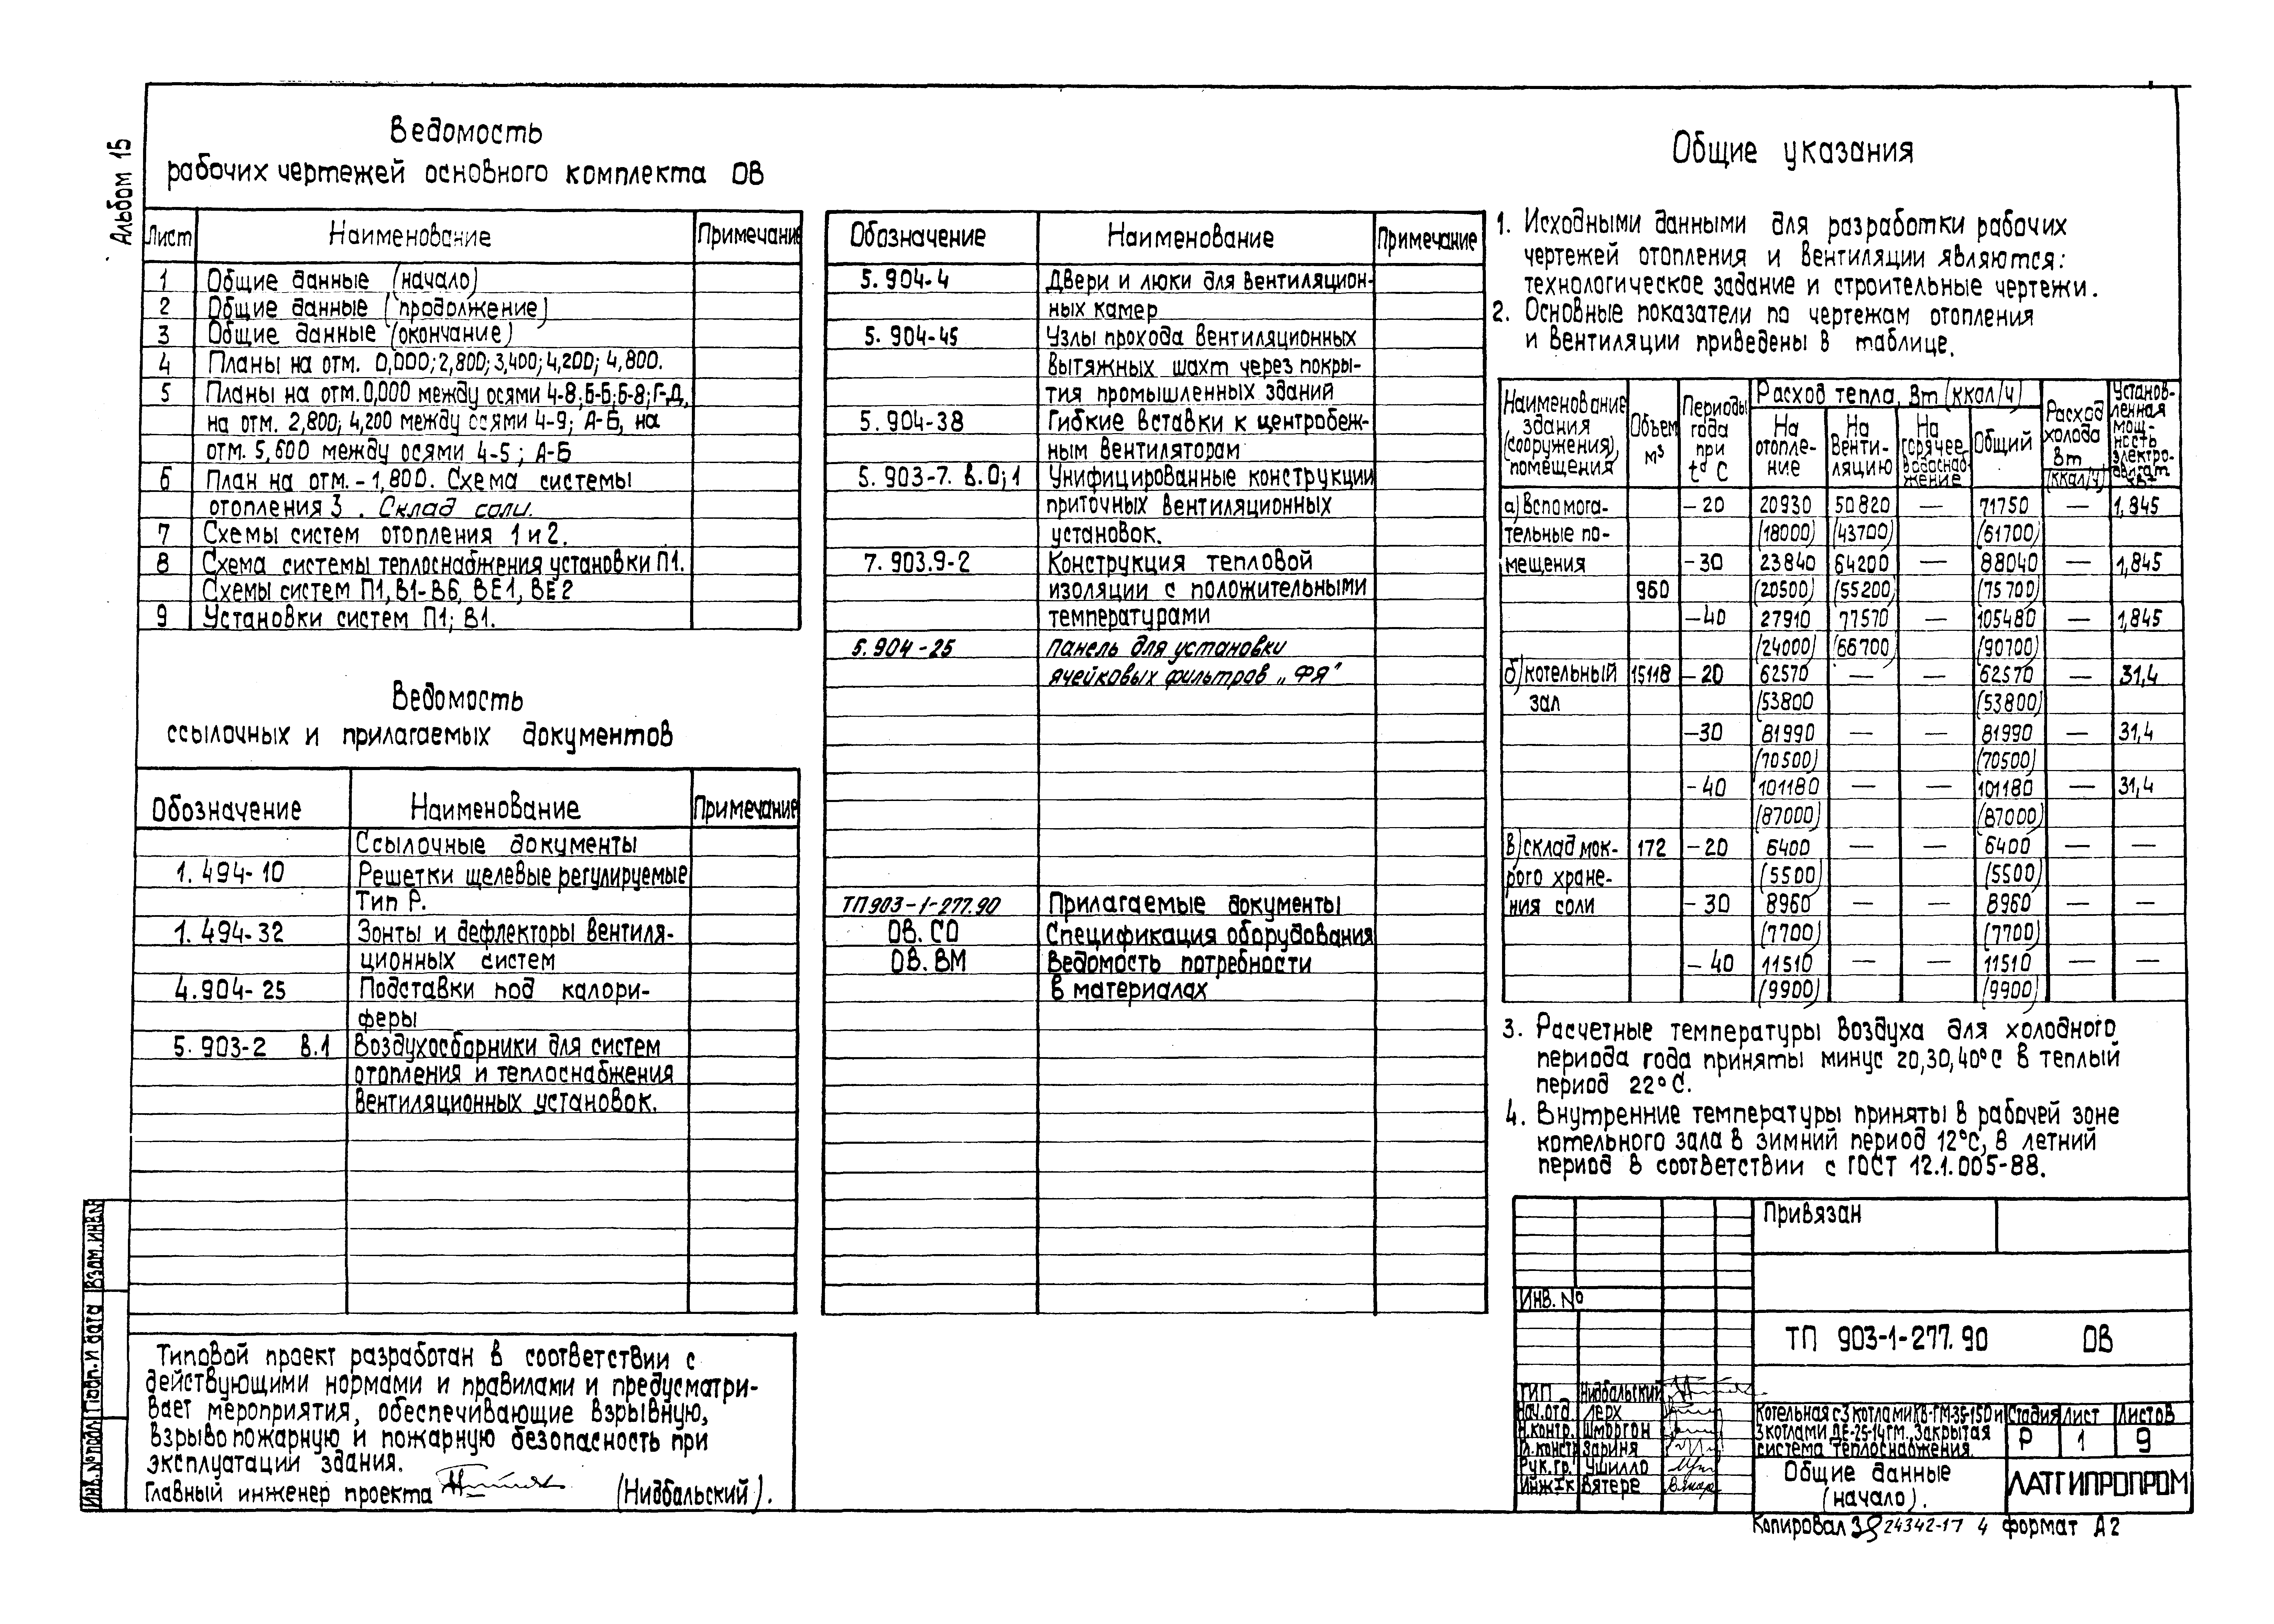 Альбом 15
Ведомость
рабочих чертежей основного комплекта ОВ
Лист Наименование Примечание
1 Общие данные (начало)
2 Общие данные (продолжение)
3 Общие данные (окончание)
4 Планы на отм. 0,000; 2,800; 3,400; 4,200; 4,800.
5 Планы на отм. 0,000 между осями 4-8, Б-Б; Б-8; Г-Д,
на отм. 2,800; 4,200 между осями 4-9; А-Б, на
отм. 5,600 между осями 4-5; А-Б
6 План на отм. -1,800. Схема системы
отопления 3. Склад соли.
7 Схемы систем отопления 1 и 2.
8 Схема системы теплоснабжения установки П1.
Схемы систем П1, В1-В6, ВЕ1, ВЕ2
9 Установки систем П1; В1.
Ведомость
ссылочных и прилагаемых документов
Обозначение Наименование Примечание
Ссылочные документы
1.494-10 Решетки щелевые регулируемые
Тип Р.
1.494-32 Зонты и дефлекторы вентиля-
ционных систем
4.904-25 Подставки под калори-
феры
5.903-2 в.1 Воздухосборники для систем
отопления и теплоснабжения
вентиляционных установок.
Типовой проект разработан в соответствии с
действующими нормами и правилами и предусматри-
вает мероприятия, обеспечивающие взрывную,
взрывопожарную и пожарную безопасность при
эксплуатации здания.
Главный инженер проекта (Нидбальский).
Взам. инв. №
Подп. и дата
Инв. № подл.
Обозначение Наименование Примечание
5.904-4 Двери и люки для вентиляцион-
ных камер
5.904-45 Узлы прохода вентиляционных
вытяжных шахт через покры-
тия промышленных зданий
5.904-38 Гибкие вставки к центробеж-
ным вентиляторам
5.903-7. в.0;1 Унифицированные конструкции
приточных вентиляционных
установок.
7.903.9-2 Конструкция тепловой
изоляции с положительными
температурами
5.904-25 Панель для установки
ячейковых фильтров „ФЯ"
ТП903-1-277.90 Прилагаемые документы
ОВ.СО Спецификация оборудования
ОВ.ВМ Ведомость потребности
в материалах
Общие указания
1. Исходными данными для разработки рабочих
чертежей отопления и вентиляции являются:
технологическое задание и строительные чертежи.
2. Основные показатели по чертежам отопления
и вентиляции приведены в таблице.
Наименование здания (сооружения), помещения Объем м³ Периоды года при t° С Расход тепла, Вт (ккал/ч) Расход холода Вт (ккал/ч) Установ-ленная мощ-ность электро-двигат. кВт
На отопле-ние На венти-ляцию На горячее водоснаб-жение Общий
а) вспомога- -20 20930 50820 — 71750 — 1,845
тельные по- (18000) (43700) (61700)
мещения -30 23840 64200 — 88040 — 1,845
960 (20500) (55200) (75700)
-40 27910 77570 — 105480 — 1,845
(24000) (66700) (90700)
б) котельный 15118 -20 62570 — — 62570 — 31,4
зал (53800 (53800)
-30 81990 — — 81990 — 31,4
(70500) (70500)
-40 101180 — — 101180 — 31,4
(87000) (87000)
в) склад мок- 172 -20 6400 — — 6400 — —
рого хране- (5500) (5500)
ния соли -30 8960 — — 8960 — —
(7700) (7700)
-40 11510 — — 11510 — —
(9900) (9900)
3. Расчетные температуры воздуха для холодного
периода года приняты минус 20,30,40°С в теплый
период 22°С.
4. Внутренние температуры приняты в рабочей зоне
котельного зала в зимний период 12°С, в летний
период в соответствии с ГОСТ 12.1.005-88.
Привязан
Инв. №
ТП 903-1-277.90 ОВ
ГИП Нидбальский
Нач.отд Лерх
Н.контр. Шморгон
Гл.констр Зариня
Рук.гр. Ушилло
Инж.Iк Вятере
Котельная с 3 котлами КВ-ГМ-35-150 и
3 котлами ДЕ-25-14ГМ. Закрытая
система теплоснабжения.
Стадия Лист Листов
Р 1 9
Общие данные
(начало).
ЛАТГИПРОПРОМ
Копировал 24342-17 4 формат А2